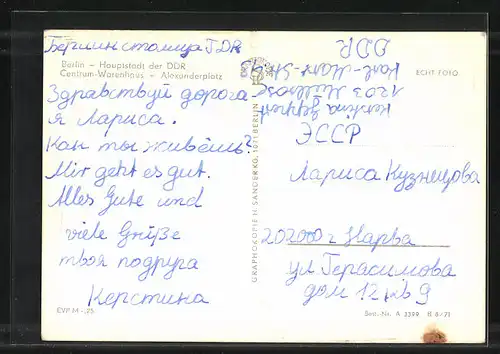 Берлин столица ГDR
Berlin – Hauptstadt der DDR
Centrum-Warenhaus – Alexanderplatz
Здравствуй дорога-
я Лариса.
Как ты живёшь?
Mir geht es gut.
Alles Gute und
viele Grüße
твоя подруга
Керстина
EVP M -,25
GRAPHOKOPIE H. SANDER KG. 1071 BERLIN
ECHT FOTO
1203 Müllrose
Karl-Marx-Str.
DDR
ЭССР
Лариса Кузнецова
202000 г Нарва
ул Герасимова
дом 12 кв 9
Best.-Nr. A 3399 II 8/71